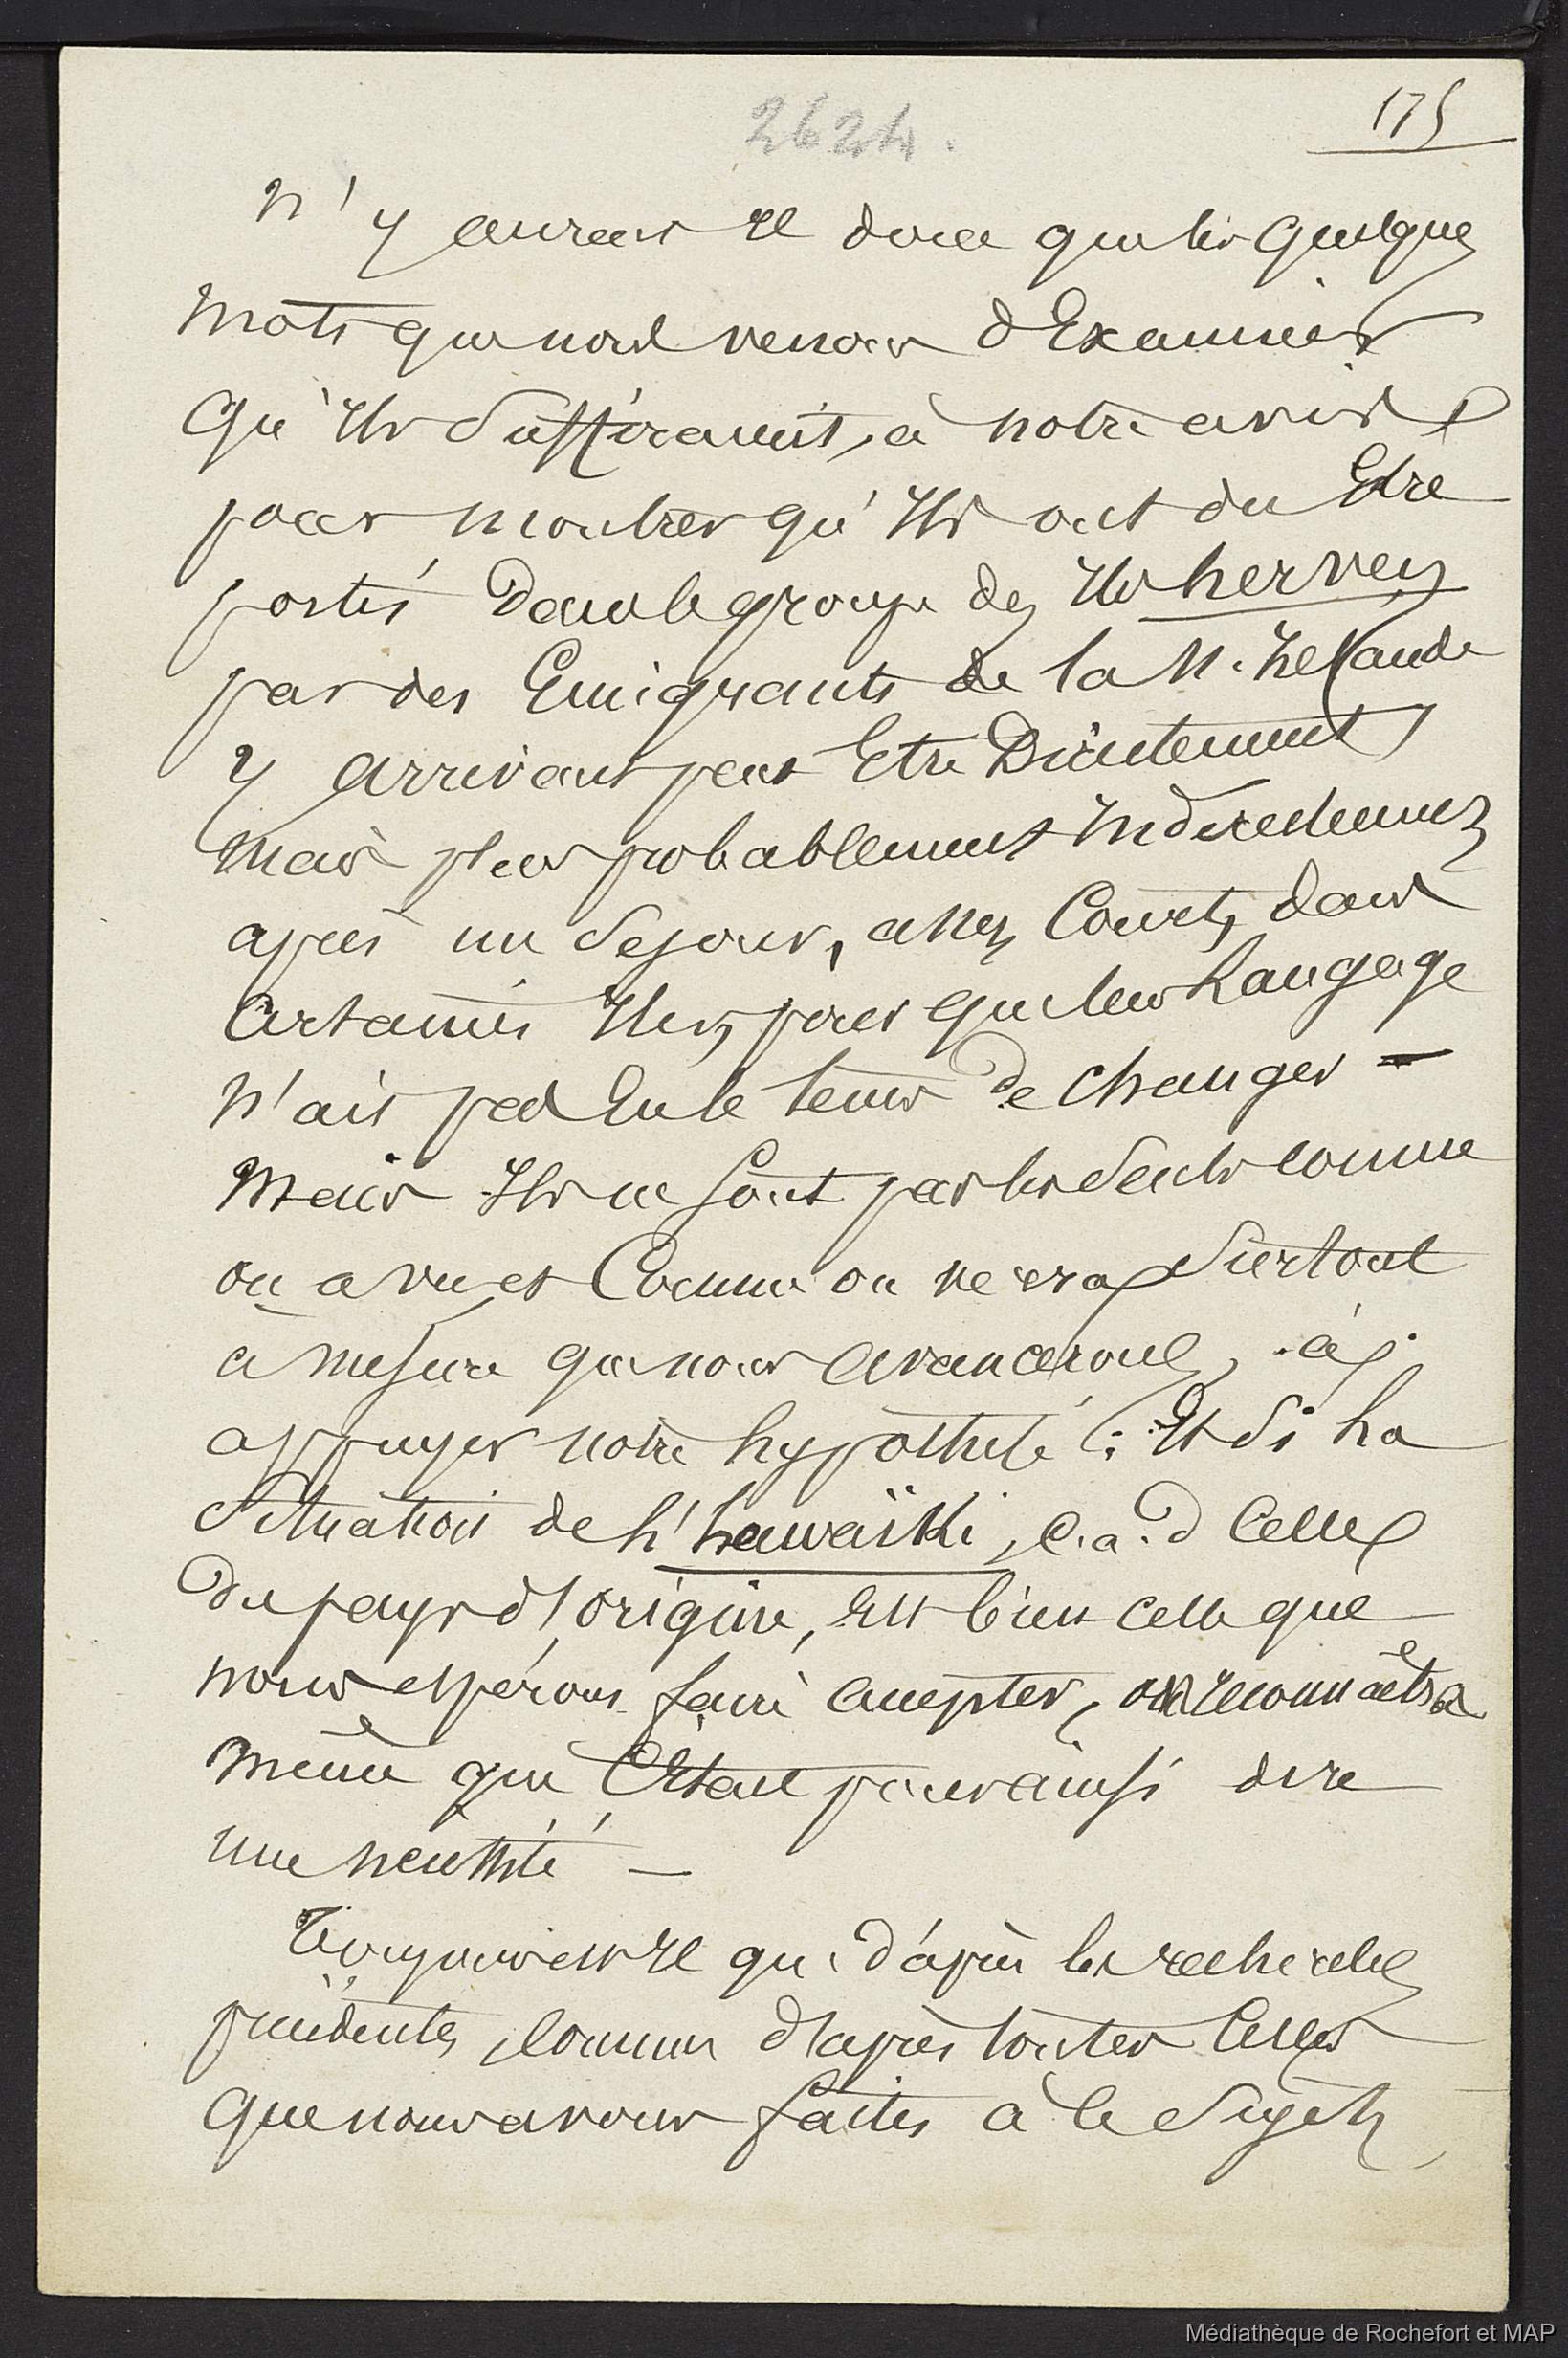 2624.
175
N'y aurait Il donc que les quelques
Mots que nous venons d'Examiner
Qu'Ils Suffiraient, à notre avis
pour montrer qu'Ils ont du Etre
portés Dans le groupe des Iles hervey
par des Emigrants de la N. Zelande
y arrivant peut Etre Directement
Mais plus probablement Indirectement
après un Sejour, assez Court, dans
Certaines Iles, pour que leur Langage
N'ait pas Eu le tems De changer -
Mais Ils ne sont pas les Seuls comme
on a vu et Comme on verra Surtout
à mesure que nous avancerons, à
appuyer notre hypothese : Et Si La
Situation de L'hawaïki, c.a.d Celle
du pays d'origine, Est bien celle que
nous espérons faire accepter, on reconnaêtra
même que C'Etait pour ainsi dire
une necessité -
Toujours est Il que d'après les recherches
précédentes, Comme d'après toutes Celles
Que nous avons faites à ce Sujet,
Médiathèque de Rochefort et MAP